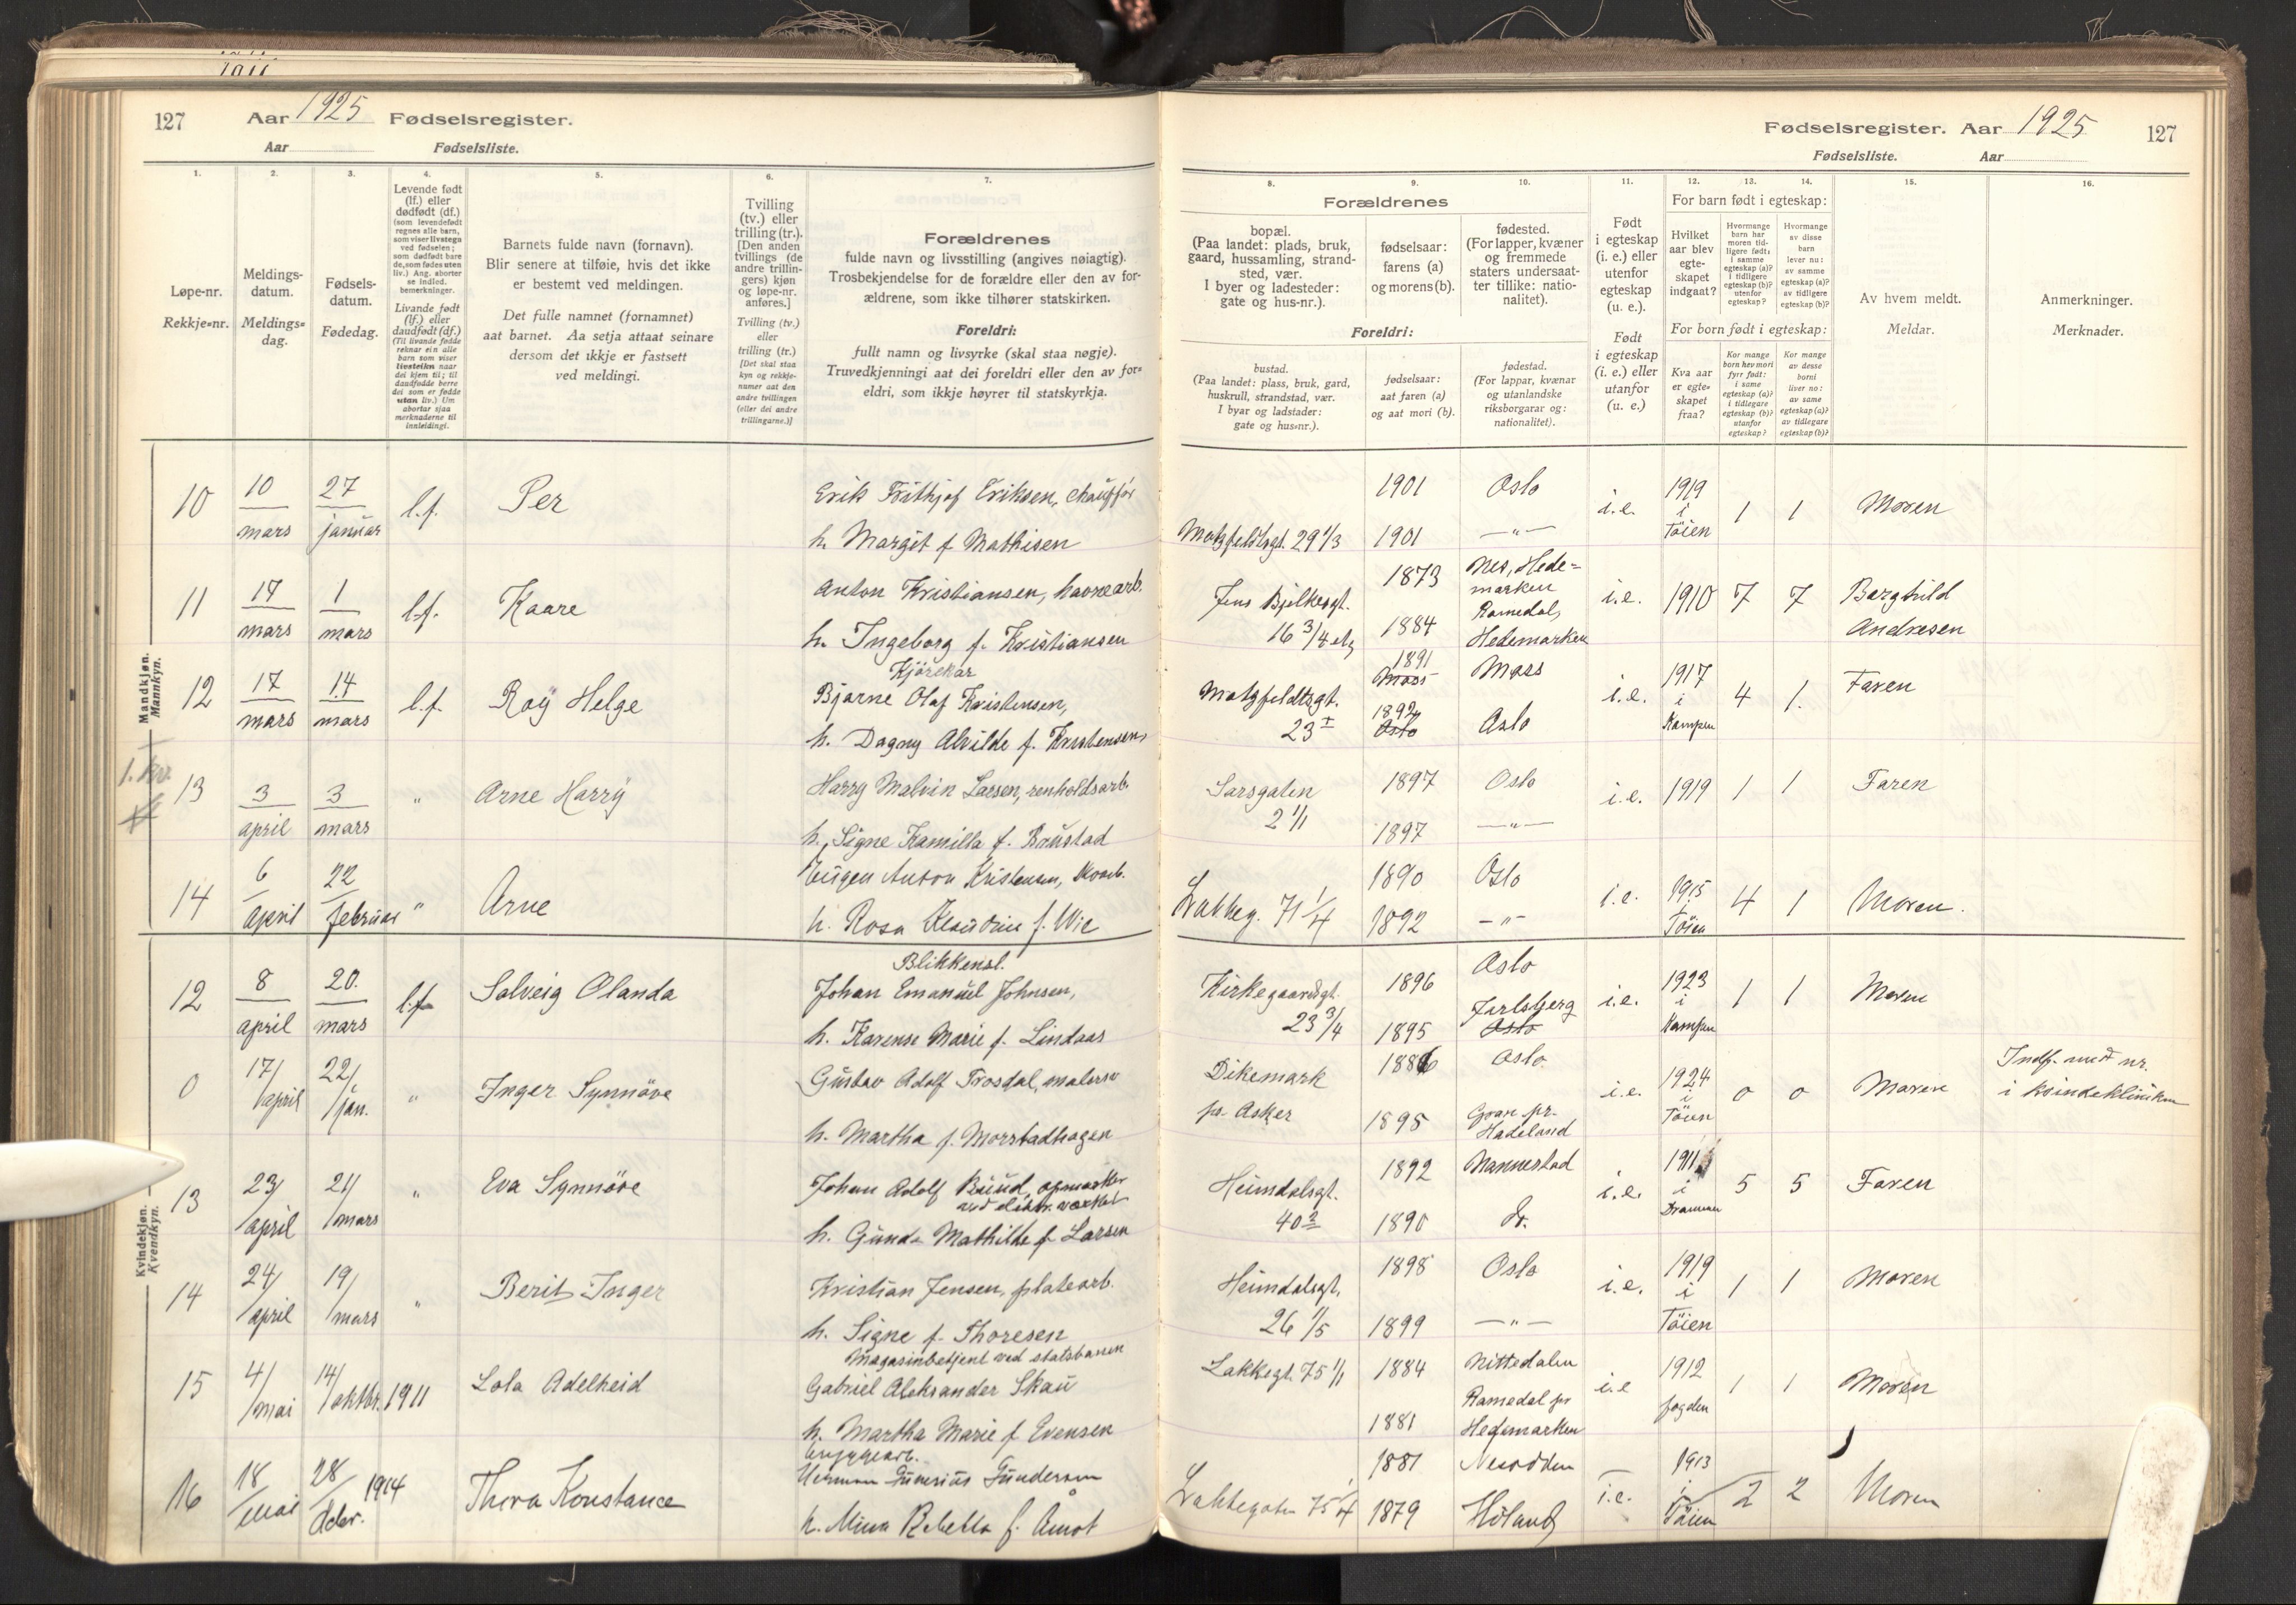 127 Aar 1925 Fødselsregister.
Aar Fødselsliste.
1.
Løpe-nr.
Rekkje=nr.
2.
Meldings-
datum.
Meldings=
dag.
3.
Fødsels-
datum.
Fødedag.
4.
Levende født
(lf.) eller
dødfødt (df.)
(som levendefødt
regnes alle barn,
som viser livstegn
ved fødselen;
som dødfødt bare
de, som fødes uten
liv.) Ang. aborter
se indled.
bemerkninger.
Livande født
(lf.) eller
daudfødt (df.)
(Til livande fødde
reknar ein alle
barn som viser
livsteikn naar
dei kjem til; til
daudfødde berre
dei som er fødde
utan liv.) Um
abortar sjaa
merknaderne til
innleidingi.
5.
Barnets fulde navn (fornavn).
Blir senere at tilføie, hvis det ikke
er bestemt ved meldingen.
Det fulle namnet (fornamnet)
aat barnet. Aa setja attaat seinare
dersom det ikkje er fastsett
ved meldingi.
6.
Tvilling
(tv.) eller
trilling (tr.).
[Den anden
tvillings (de
andre trillin-
gers) kjøn
og løpe-nr.
anføres.]
Tvilling (tv.)
eller
trilling (tr.)
[Det skal staa
kyn og rekkje-
numer aat den
andre tvillingen
(eller dei andre
trillingarne.)]
7.
Forældrenes
fulde navn og livsstilling (angives nøiagtig).
Trosbekjendelse for de forældre eller den av for-
ældrene, som ikke tilhører statskirken.
Foreldri:
fullt namn og livsyrke (skal staa nøgje).
Truvedkjenningi aat dei foreldri eller den av for=
eldri, som ikkje høyrer til statskyrkja.
Mandkjøn.
Mannkyn.
10 10 mars 27 januar l.f. Per Erik Frithjof Eriksen, chauffør
h. Margit f. Mathisen
11 17 mars 1 mars l.f. Kaare Anton Kristiansen, havnearb.
h. Ingeborg f. Kristiansen
12 17 mars 14 mars l.f. Roy Helge Kjørekar
Bjarne Olaf Kristensen,
h. Dagny Alvilde f. Kristensen
13 3 april 3 mars " Arne Harry Harry Malvin Larsen, renholdsarb.
h. Signe Kamilla f. Brustad
14 6 april 22 februar " Arne Eugen Anton Kristensen,
h. Rosa Klaudine f. Wie
Kvindekjøn.
Kvendkyn.
12 8 april 20. mars l.f. Solveig Olanda Blikkensl.
Johan Emanuel Johnsen,
h. Karense Marie f. Lindaas
0 17/april 22/jan. " Inger Synnöve Gustav Adolf Trosdal, malersv
h. Martha f. Morstadhagen
13 23/april 21/mars " Eva Synnöve Johan Adolf Buud, opmerker
ved elektr. verket
h. Gunda Mathilde f. Larsen
14 24/april 19/mars " Berit Inger Kristian Jensen, platearb.
h. Signe f. Thoresen
15 4/mai 14/oktbr. 1911 Lola Adelheid Magasinbetjent ved statsbanen
Gabriel Aleksander Skau
h. Martha Marie f. Evensen
16 18/mai 28/decbr. 1914 Thora Konstance bryggearb.
Herman Gunerius Gundersen
h. Mina Rebekka f. Amot
Fødselsregister. Aar 1925 127
Fødselsliste. Aar
8.
9.
10.
Forældrenes
bopæl.
(Paa landet: plads, bruk,
gaard, hussamling, strand-
sted, vær.
I byer og ladesteder:
gate og hus-nr.).
fødselsaar:
farens (a)
og morens (b).
fødested.
(For lapper, kvæner
og fremmede
staters undersaat-
ter tillike: natio-
nalitet).
Foreldri:
bustad.
(Paa landet: plass, bruk, gard,
huskrull, strandstad, vær.
I byar og ladstader:
gate og hus=nr.).
fødselsaar:
aat faren (a)
og aat mori (b).
fødestad.
(For lappar, kvænar
og utanlandske
riksborgarar og:
nationalitet).
11.
Født
i egteskap
(i. e.) eller
utenfor
egteskap
(u. e.).
Født
i egteskap
(i. e.) eller
utanfor
(u. e.)
12.
13.
14.
For barn født i egteskap:
Hvilket
aar blev
egte-
skapet
indgaat?
Hvormange
barn har
moren tid-
ligere født:
i samme
egteskap (a)?
i tidligere
egteskap (b)?
utenfor
egteskap?
Hvormange
av disse
barn
lever nu:
av samme
egteskap (a)?
av tidligere
egteskap (b)?
For born født i egteskap:
Kva aar
er egte=
skapet
fraa?
Kor mange
born hev mori
fyrr født:
i same
egteskap (a)?
i tidlegare
egteskap (b)?
utanfor
egteskap?
Kor mange
av desse
borni
liver no:
av same
egteskap (a)?
av tidlegare
egteskap (b)?
15.
Av hvem meldt.
Meldar.
16.
Anmerkninger.
Merknader.
Motzfeldtsgt. 29 1/3 1901 Oslo i.e. 1919 i Töien 1 1 Moren
1901 — " —
Jens Bjelkesgt. 16 3/4 etg 1873 Nes, Hede=
marken i.e. 1910 7 7 Borghild
Andresen
1884 Romedal,
Hedemarken
Motzfeldtsgt. 23 I 1891 Moss Moss i.e. 1917 i Kampen 4 1. Faren
1892 Oslo Oslo
Sarsgaten 2 1/1 1897 Oslo i.e. 1919 1 1 Faren
1897 — " —
Lakkeg. 71 1/4 1890 Oslo i.e. 1915 i Töien 4 1 Moren.
1892 — " —
Kirkegaardsgt. 23 3/4 1896 Oslo i.e. 1923 i Kampen 1 1 Moren
1895 Jarlsberg Oslo
Dikemark pr. Asker 1886 Oslo i.e. 1924 i Töien 0 0 Moren Indf. med nr.
i kvindekliniken
1895 Gran pr.
Hadeland
Heimdalsgt. 40 2 1892 Nannestad i.e. 1911 i Drammen 5 5 Faren
1890 do.
Heimdalsgt. 26 1/5 1898 Oslo i.e. 1919 i Töien 1 1 Moren
1899 — " —
Lakkegt. 75 1/1 1884 Nittedalen i.e 1912 fogden 1 1 Moren
1881 Romedal pr
Hedemarken
Lakkegaten 75 1/4 1881 Nesodden i.e. 1913 i Töien 2 2 Moren
1879 Höland